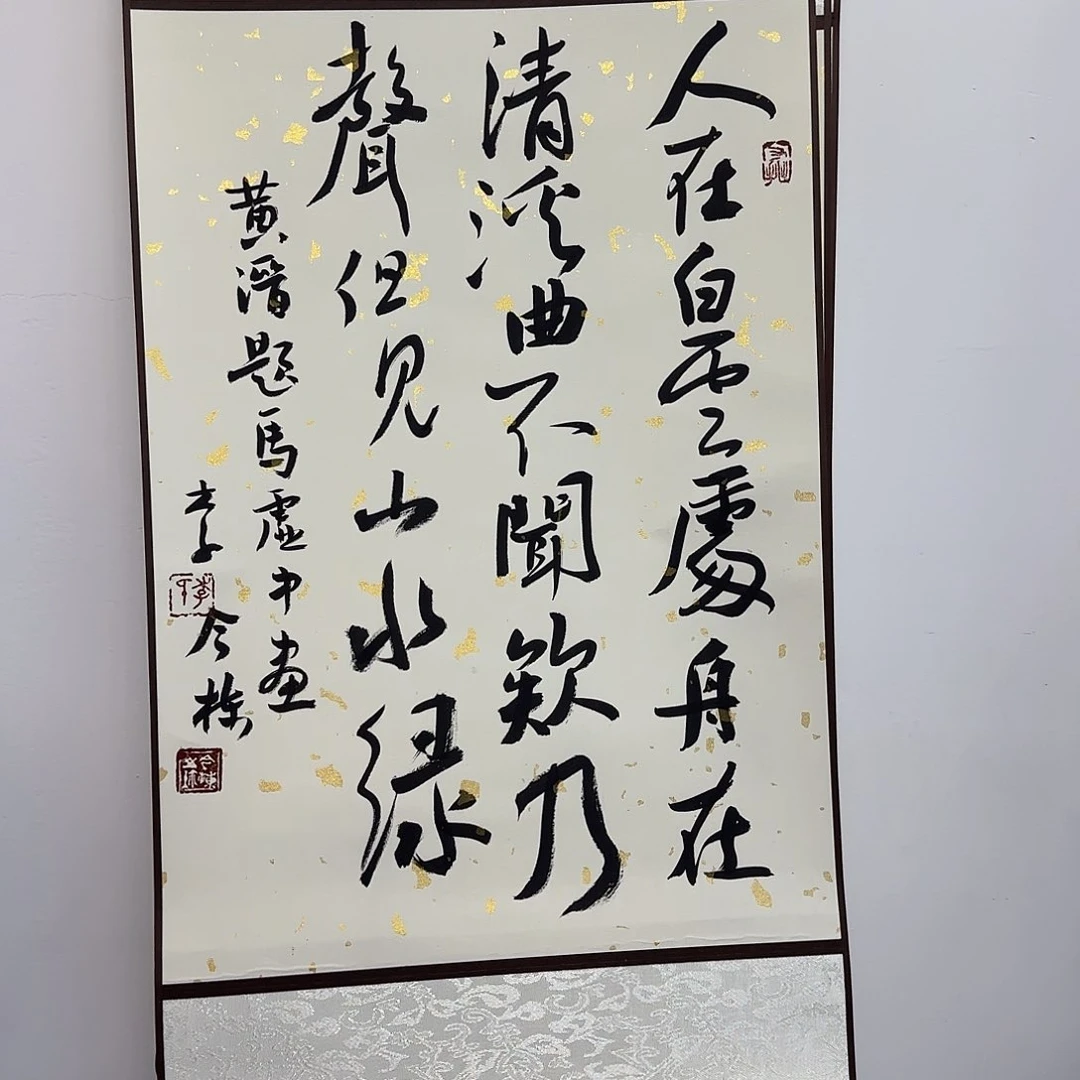 人在白雲處舟在
清溪曲不聞欸乃
聲但見山水綠
黄溍題馬虛中畫
李令棟